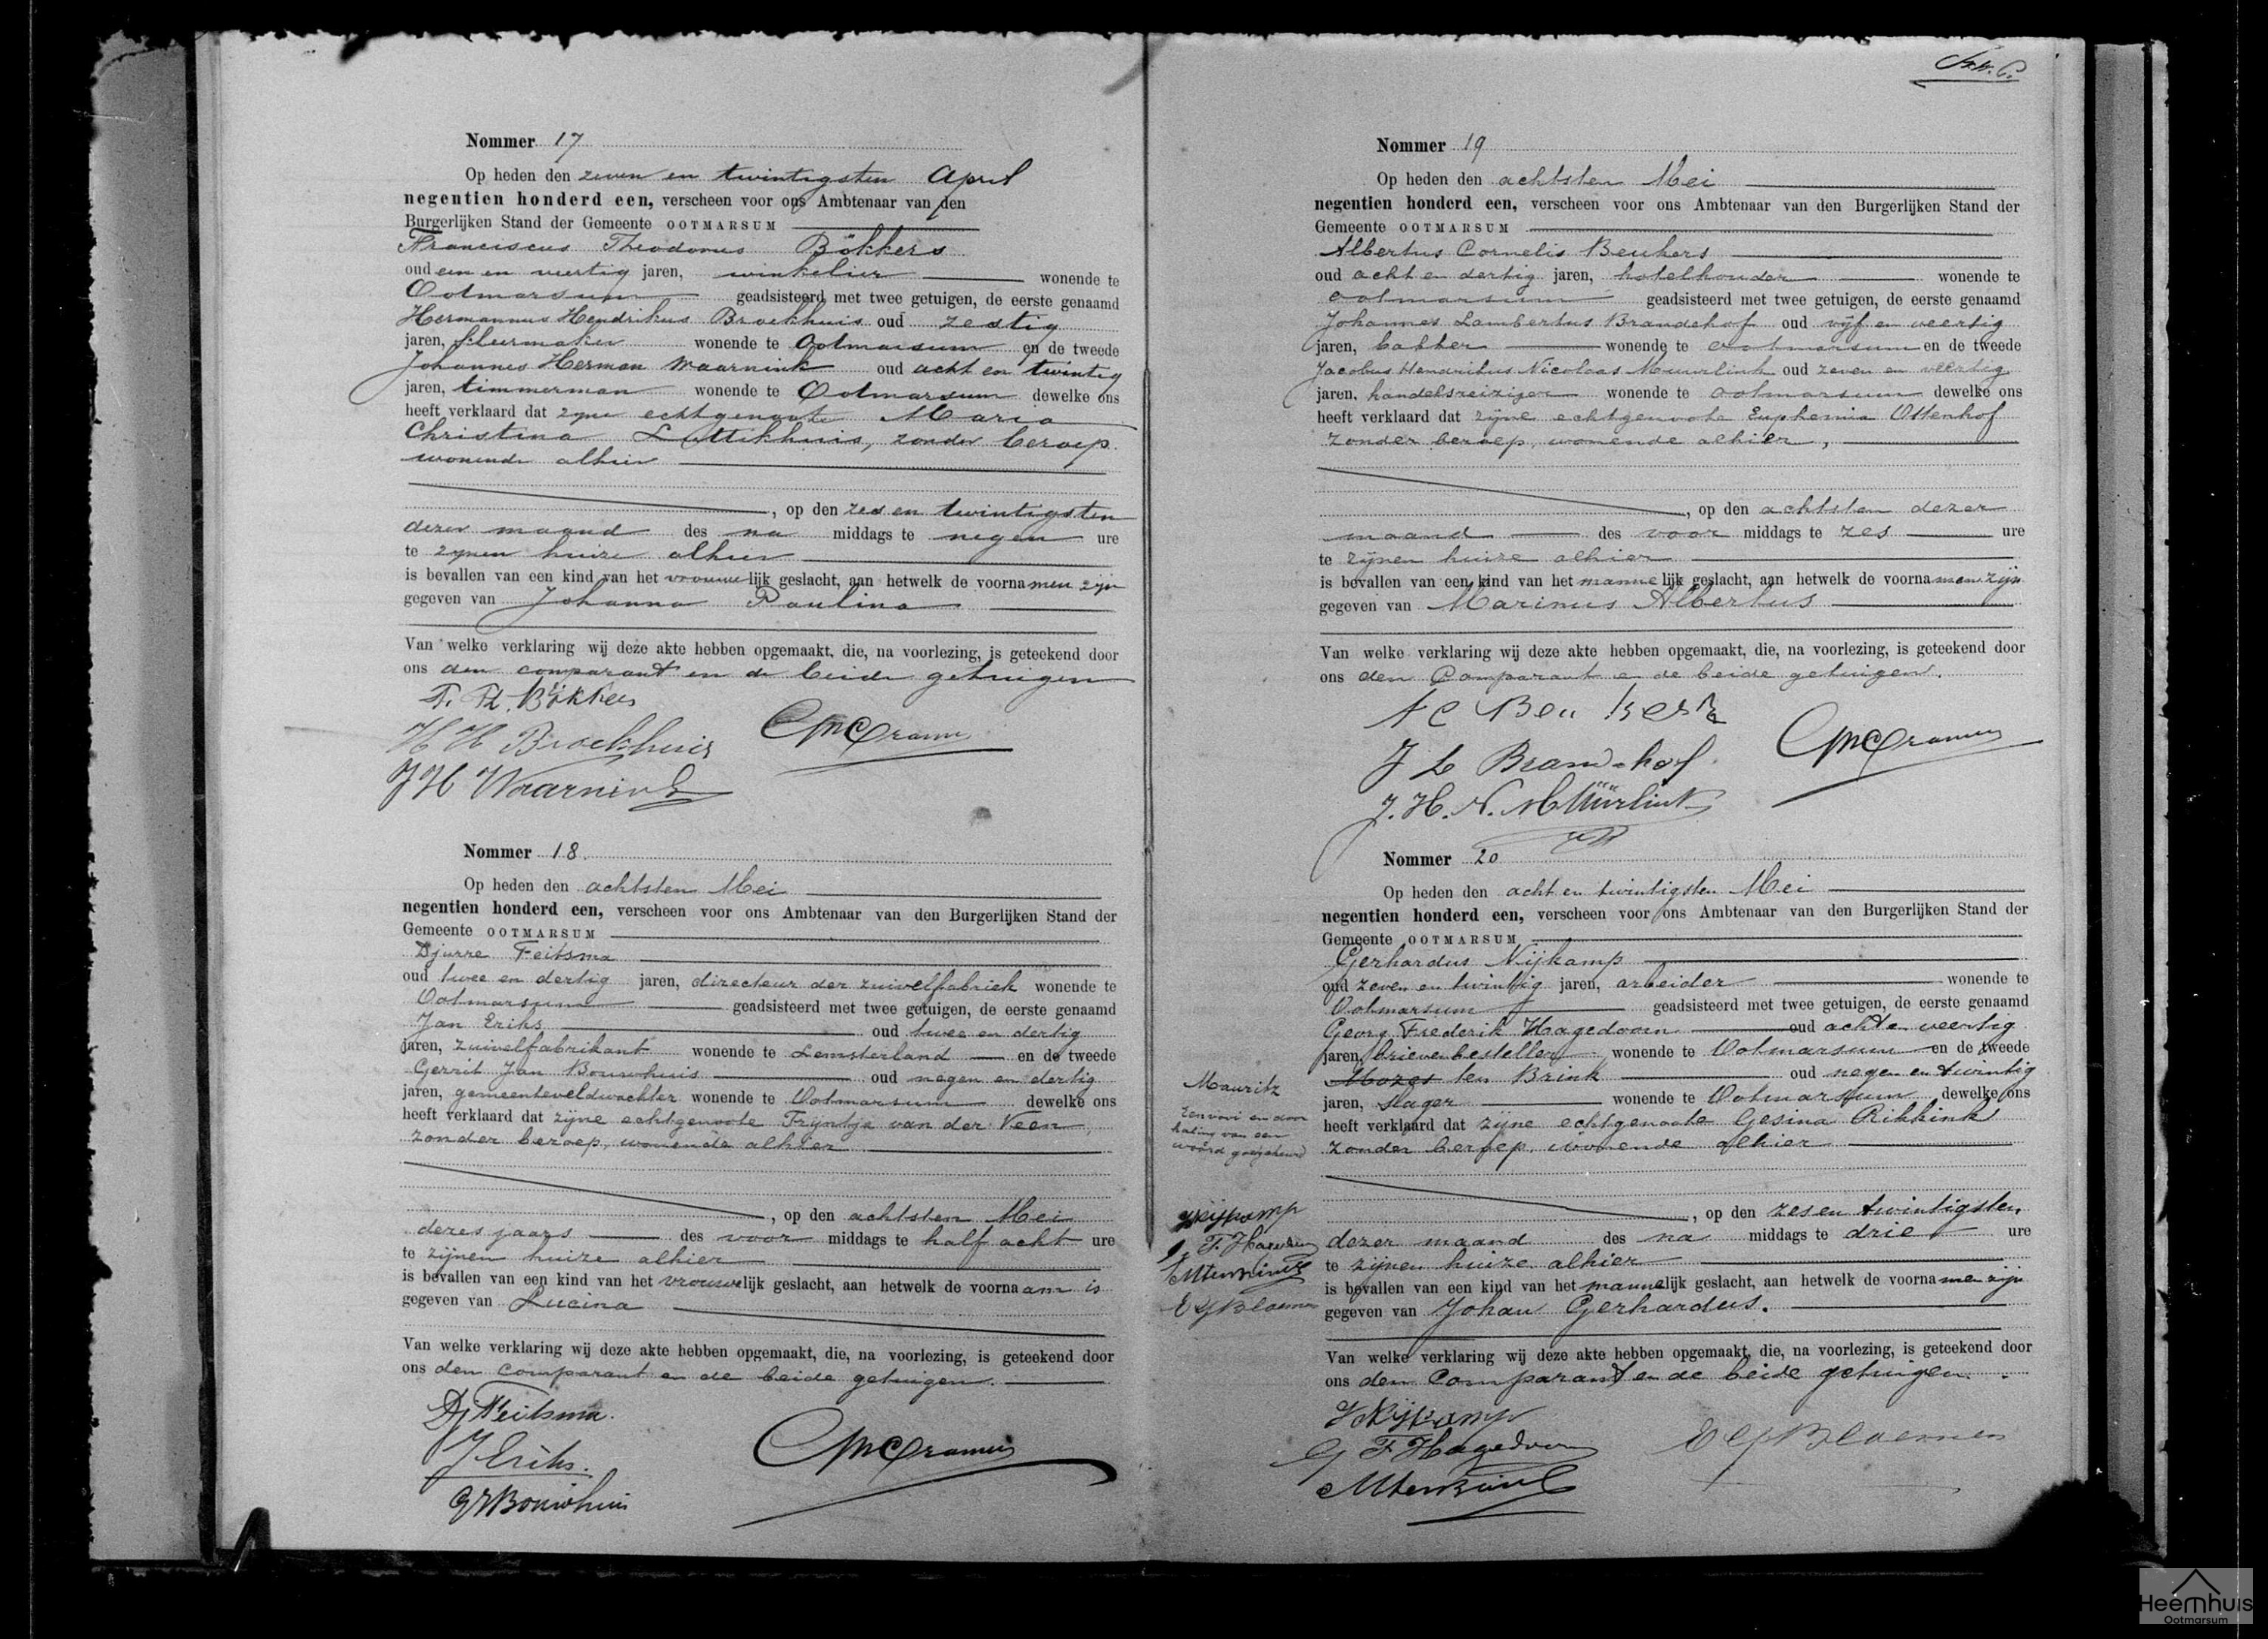 Nommer 17
Op heden den zeven en twintigsten April
negentien honderd een, verscheen voor ons Ambtenaar van den
Burgerlijken Stand der Gemeente OOTMARSUM
Franciscus Theodorus Bökkers
oud een en veertig jaren, winkelier wonende te
Ootmarsum geadsisteerd met twee getuigen, de eerste genaamd
Hermannus Hendrikus Broekhuis oud zestig
jaren, kleermaker wonende te Ootmarsum en de tweede
Johannes Herman Waarnink oud acht en twintig
jaren, timmerman wonende te Ootmarsum dewelke ons
heeft verklaard dat zijne echtgenoote Maria
Christina Luttikhuis, zonder beroep
wonende alhier
, op den zes en twintigsten
dezer maand des na middags te negen ure
te zijnen huize alhier
is bevallen van een kind van het vrouwelijk geslacht, aan hetwelk de voornamen zijn
gegeven van Johanna Paulina
Van welke verklaring wij deze akte hebben opgemaakt, die, na voorlezing, is geteekend door
ons den comparant en de beide getuigen
F. Th. Bökkers
H H Broekhuis
J H Waarnink
Nommer 18
Op heden den achtsten Mei
negentien honderd een, verscheen voor ons Ambtenaar van den Burgerlijken Stand der
Gemeente OOTMARSUM
Djurre Feitsma
oud twee en dertig jaren, directeur der zuivelfabriek wonende te
Ootmarsum geadsisteerd met twee getuigen, de eerste genaamd
Jan Eriks oud twee en dertig
jaren, zuivelfabrikant wonende te Lemsterland en de tweede
Gerrit Jan Bouwhuis oud negen en dertig
jaren, gemeenteveldwachter wonende te Ootmarsum dewelke ons
heeft verklaard dat zijne echtgenoote Trijntje van der Veen,
zonder beroep, wonende alhier
, op den achtsten Mei
dezes jaars des voor middags te half acht ure
te zijnen huize alhier
is bevallen van een kind van het vrouwelijk geslacht, aan hetwelk de voornaam is
gegeven van Lucina
Van welke verklaring wij deze akte hebben opgemaakt, die, na voorlezing, is geteekend door
ons den comparant en de beide getuigen.
Dj Feitsma.
J Eriks.
GJ Bouwhuis
Nommer 19
Op heden den achtsten Mei
negentien honderd een, verscheen voor ons Ambtenaar van den Burgerlijken Stand der
Gemeente OOTMARSUM
Albertus Cornelis Beukers
oud acht en dertig jaren, hotelhouder wonende te
Ootmarsum geadsisteerd met twee getuigen, de eerste genaamd
Johannes Lambertus Brandehof oud vijf en veertig
jaren, bakker wonende te Ootmarsum en de tweede
Jacobus Hendrikus Nicolaas Meuwlink oud zeven en veertig
jaren, handelsreiziger wonende te Ootmarsum dewelke ons
heeft verklaard dat zijne echtgenoote Euphemia Ottenhof
zonder beroep, wonende alhier,
, op den achtsten dezer
maand des voor middags te zes ure
te zijnen huize alhier
is bevallen van een kind van het mannelijk geslacht, aan hetwelk de voornamen zijn
gegeven van Marinus Albertus
Van welke verklaring wij deze akte hebben opgemaakt, die, na voorlezing, is geteekend door
ons den Comparant en de beide getuigen.
A C Beukers
J L Brandehof
Nommer 20
Op heden den acht en twintigsten Mei
negentien honderd een, verscheen voor ons Ambtenaar van den Burgerlijken Stand der
Gemeente OOTMARSUM
Gerhardus Nijkamp
oud zeven en twintig jaren, arbeider wonende te
Ootmarsum geadsisteerd met twee getuigen, de eerste genaamd
Georg Frederik Hagedoorn oud acht en veertig
jaren, brievenbesteller wonende te Ootmarsum en de tweede
Mozes ten Brink oud negen en twintig
jaren, slager wonende te Ootmarsum dewelke ons
heeft verklaard dat zijne echtgenoote Gesina Rikkink
zonder beroep, wonende alhier
, op den zes en twintigsten
dezer maand des na middags te drie ure
te zijnen huize alhier
is bevallen van een kind van het mannelijk geslacht, aan hetwelk de voornamen zijn
gegeven van Johan Gerhardus.
Van welke verklaring wij deze akte hebben opgemaakt, die, na voorlezing, is geteekend door
ons den Comparant en de beide getuigen.
G Nijkamp
G F Hagedoorn
M ten Brink
E G Bloemen
Mauritz
van een
woord goedgekeurd
Nijkamp
E G Bloemen
Heemhuis
Ootmarsum